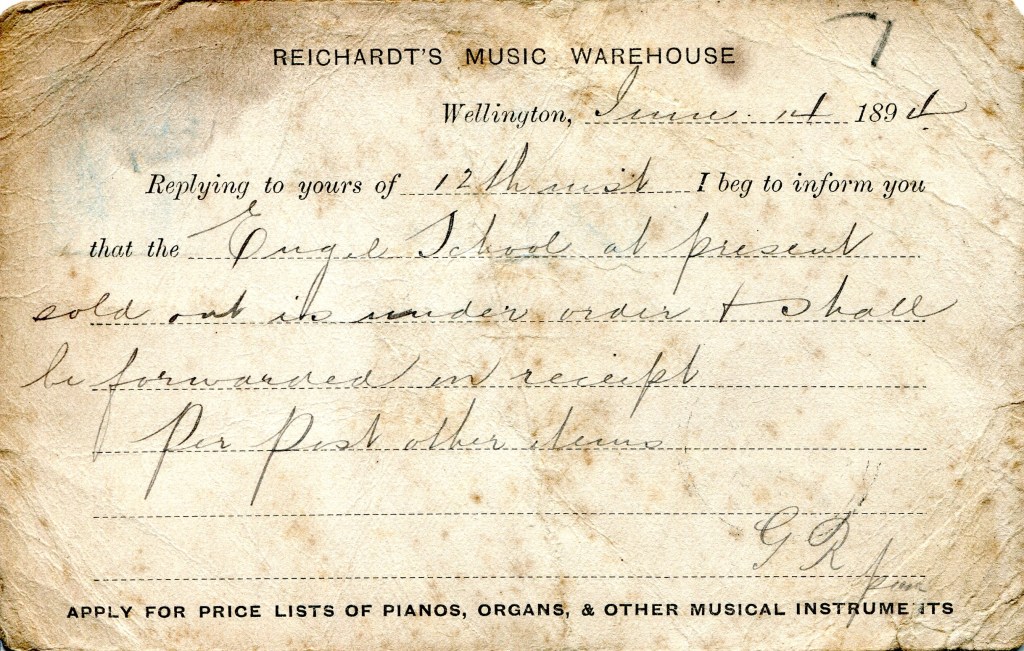 REICHARDT'S MUSIC WAREHOUSE
Wellington, June 14 1894
Replying to yours of 12th inst I beg to inform you
that the Engel School at present
sold out is under order & shall
be forwarded on receipt
Per Post other items
G R
APPLY FOR PRICE LISTS OF PIANOS, ORGANS, & OTHER MUSICAL INSTRUMENTS